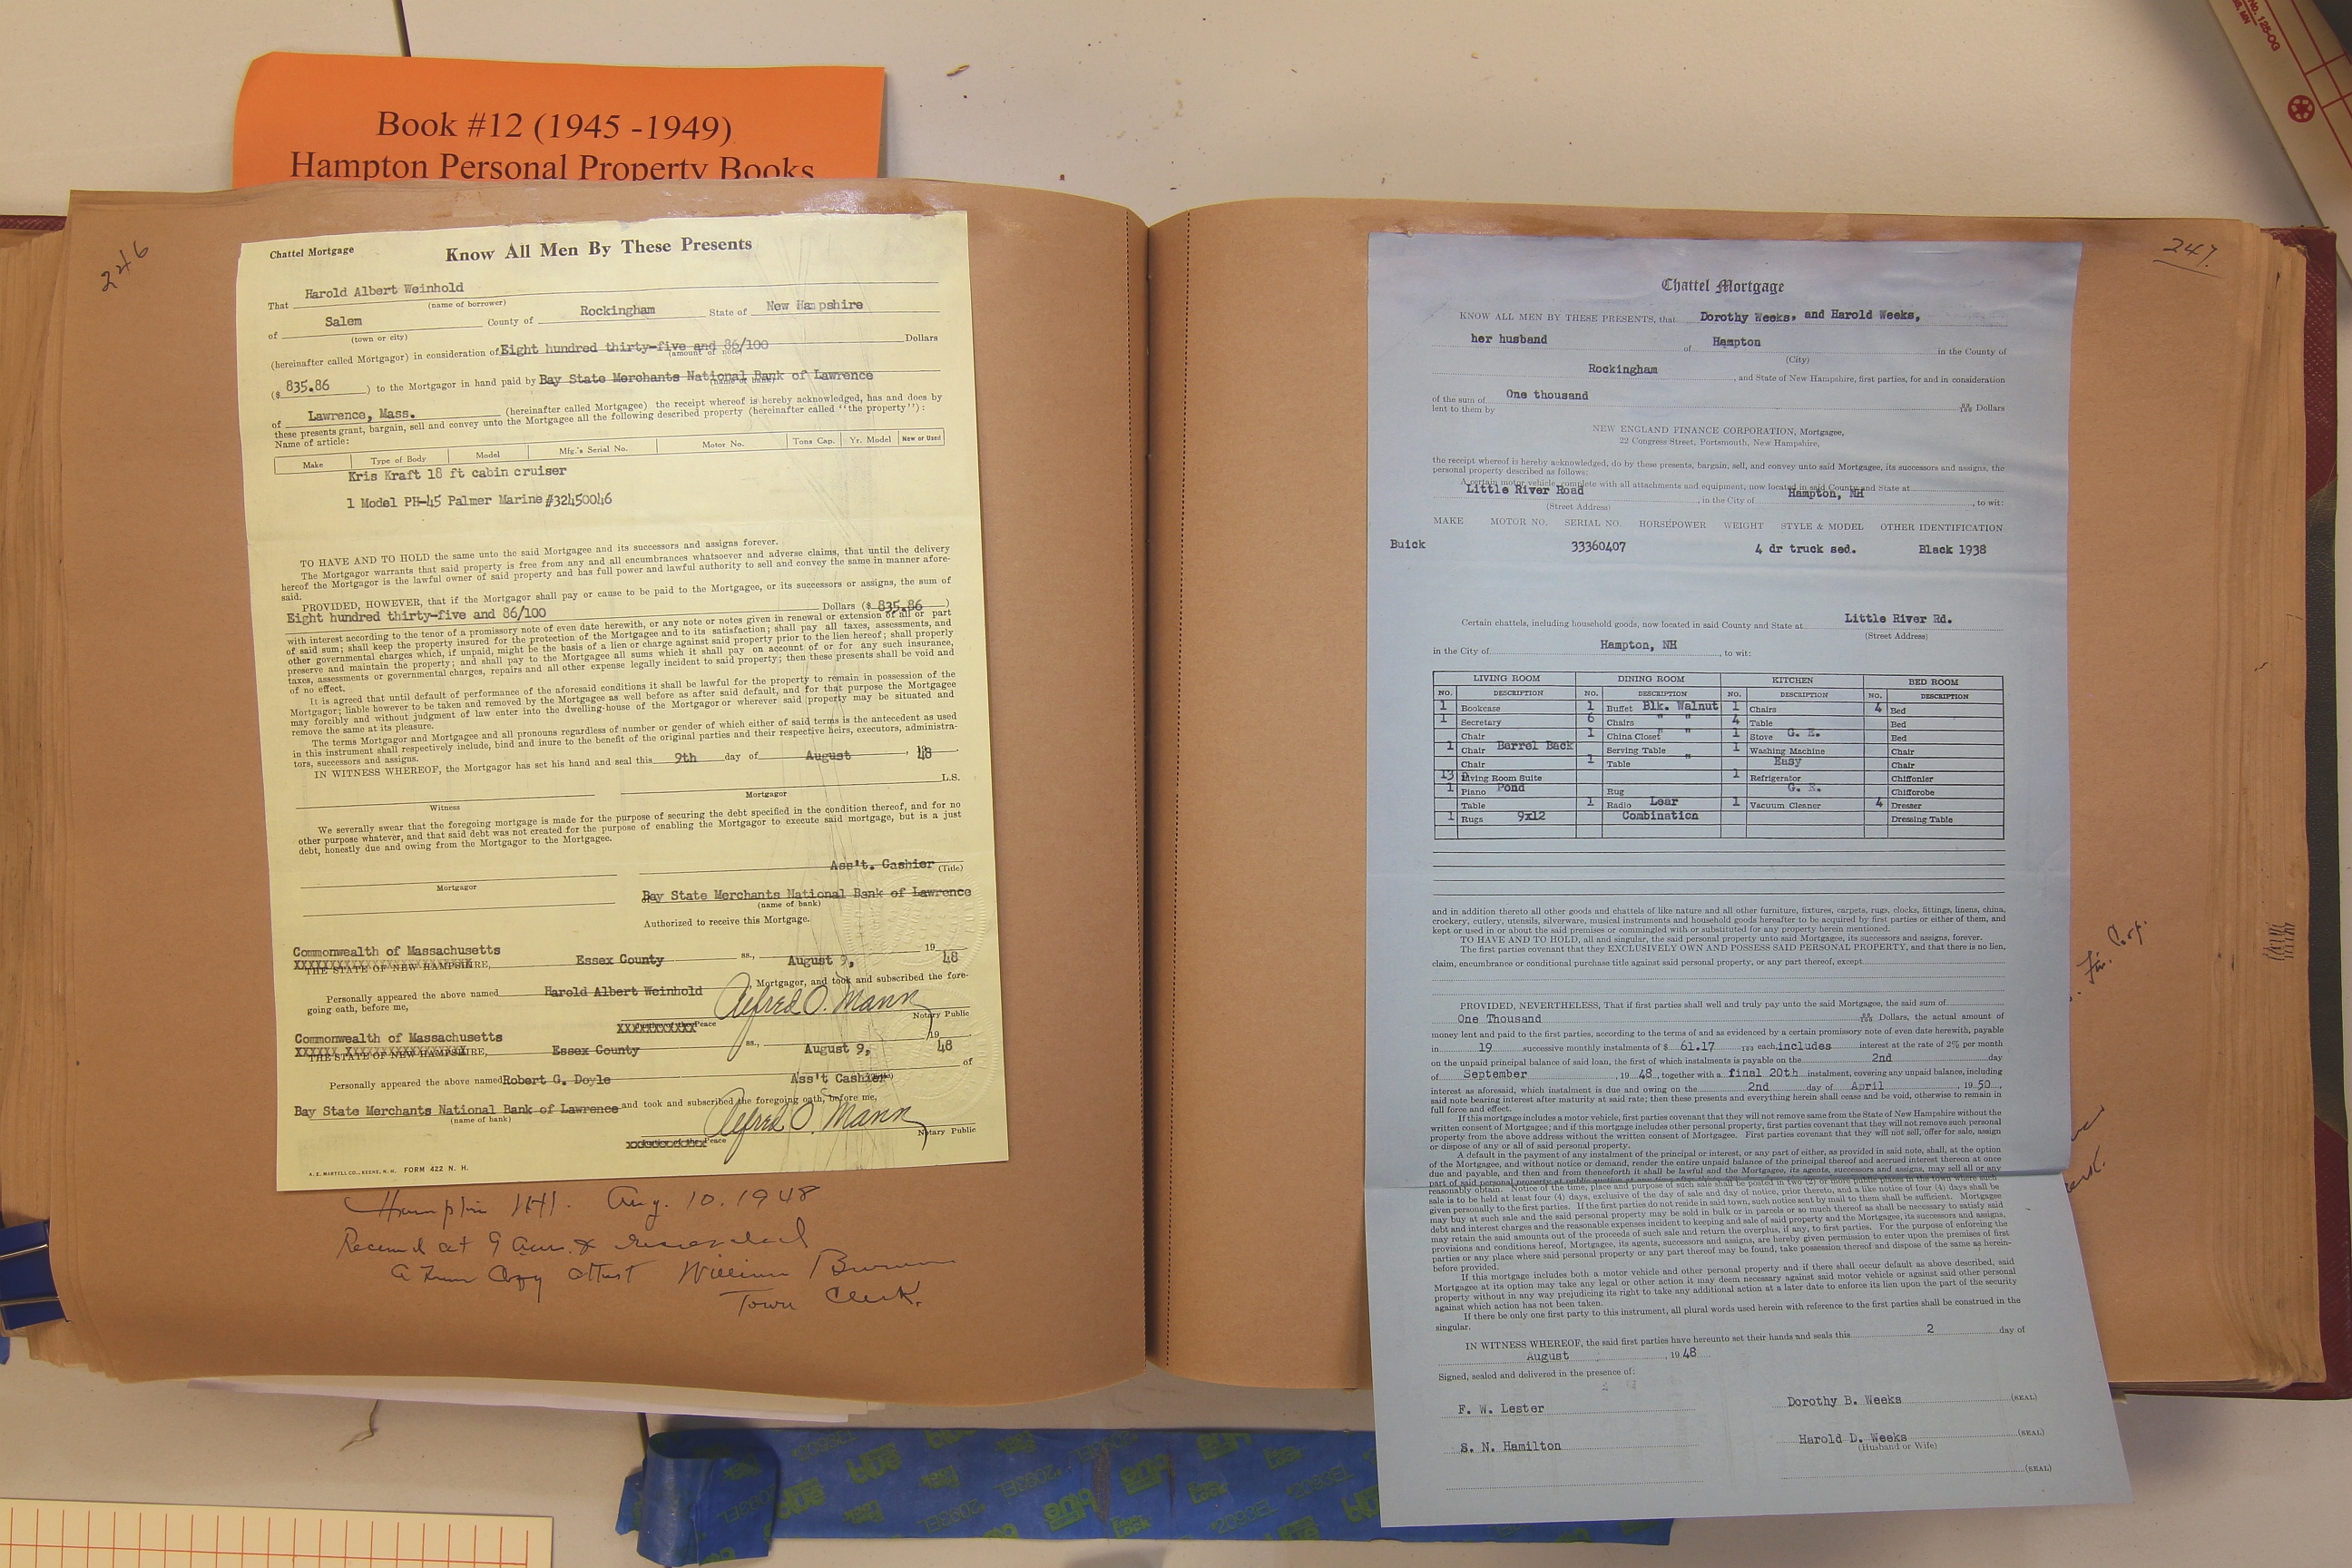 Book #12 (1945 -1949)
Hampton Personal Property Books
246
Chattel Mortgage
Know All Men By These Presents
That Harold Albert Weinhold
(name of borrower)
of Salem County of Rockingham State of New Hampshire
(town or city)
(hereinafter called Mortgagor) in consideration of Eight hundred thirty-five and 86/100 Dollars
(amount of note)
($ 835.86 ) to the Mortgagor in hand paid by Bay State Merchants National Bank of Lawrence
(name of bank)
of Lawrence, Mass. (hereinafter called Mortgagee) the receipt whereof is hereby acknowledged, has and does by
these presents grant, bargain, sell and convey unto the Mortgagee all the following described property (hereinafter called "the property"):
Name of article:
Make Type of Body Model Mfg.'s Serial No. Motor No. Tons Cap. Yr. Model New or Used
Kris Kraft 18 ft cabin cruiser
1 Model PH-45 Palmer Marine #32450046
TO HAVE AND TO HOLD the same unto the said Mortgagee and its successors and assigns forever.
The Mortgagor warrants that said property is free from any and all encumbrances whatsoever and adverse claims, that until the delivery
hereof the Mortgagor is the lawful owner of said property and has full power and lawful authority to sell and convey the same in manner afore-
said.
PROVIDED, HOWEVER, that if the Mortgagor shall pay or cause to be paid to the Mortgagee, or its successors or assigns, the sum of
Eight hundred thirty-five and 86/100 Dollars ($ 835.86 )
with interest according to the tenor of a promissory note of even date herewith, or any note or notes given in renewal or extension of all or part
of said sum; shall keep the property insured for the protection of the Mortgagee and to its satisfaction; shall pay all taxes, assessments, and
other governmental charges which, if unpaid, might be the basis of a lien or charge against said property prior to the lien hereof; shall properly
preserve and maintain the property; and shall pay to the Mortgagee all sums which it shall pay on account of or for any such insurance,
taxes, assessments or governmental charges, repairs and all other expense legally incident to said property; then these presents shall be void and
of no effect.
It is agreed that until default of performance of the aforesaid conditions it shall be lawful for the property to remain in possession of the
Mortgagor; liable however to be taken and removed by the Mortgagee as well before as after said default, and for that purpose the Mortgagee
may forcibly and without judgment of law enter into the dwelling-house of the Mortgagor or wherever said property may be situated and
remove the same at its pleasure.
The terms Mortgagor and Mortgagee and all pronouns regardless of number or gender of which either of said terms is the antecedent as used
in this instrument shall respectively include, bind and inure to the benefit of the original parties and their respective heirs, executors, administra-
tors, successors and assigns.
IN WITNESS WHEREOF, the Mortgagor has set his hand and seal this 9th day of August , 1948
L.S.
Witness Mortgagor
We severally swear that the foregoing mortgage is made for the purpose of securing the debt specified in the condition thereof, and for no
other purpose whatever, and that said debt was not created for the purpose of enabling the Mortgagor to execute said mortgage, but is a just
debt, honestly due and owing from the Mortgagor to the Mortgagee.
Ass't. Cashier (Title)
Mortgagor
Bay State Merchants National Bank of Lawrence
(name of bank)
Authorized to receive this Mortgage.
Commonwealth of Massachusetts
THE STATE OF NEW HAMPSHIRE, Essex County ss., August 9, 19 48
Personally appeared the above named Harold Albert Weinhold , Mortgagor, and took and subscribed the fore-
going oath, before me,
Alfred O. Mann
Notary Public
Commonwealth of Massachusetts
THE STATE OF NEW HAMPSHIRE, Essex County ss., August 9, 19 48
Personally appeared the above named Robert G. Doyle Ass't Cashier of
Bay State Merchants National Bank of Lawrence and took and subscribed the foregoing oath, before me,
(name of bank)
Alfred O. Mann
Notary Public
A. E. MARTELL CO., KEENE, N. H. FORM 422 N. H.
Hampton N.H. Aug. 10. 1948
Received at 9 a.m. & recorded
A True Copy attest William Brown
Town Clerk.
247.
Chattel Mortgage
KNOW ALL MEN BY THESE PRESENTS, that Dorothy Weeks, and Harold Weeks,
her husband of Hampton in the County of
(City)
Rockingham , and State of New Hampshire, first parties, for and in consideration
of the sum of One thousand
lent to them by Dollars
NEW ENGLAND FINANCE CORPORATION, Mortgagee,
22 Congress Street, Portsmouth, New Hampshire,
the receipt whereof is hereby acknowledged, do by these presents, bargain, sell, and convey unto said Mortgagee, its successors and assigns, the
personal property described as follows:
A certain motor vehicle, complete with all attachments and equipment, now located in said County and State at
Little River Road , in the City of Hampton, NH , to wit:
(Street Address)
MAKE MOTOR NO. SERIAL NO. HORSEPOWER WEIGHT STYLE & MODEL OTHER IDENTIFICATION
Buick 33360407 4 dr truck sed. Black 1938
Certain chattels, including household goods, now located in said County and State at Little River Rd.
(Street Address)
in the City of Hampton, NH , to wit:
LIVING ROOM DINING ROOM KITCHEN BED ROOM
NO. DESCRIPTION NO. DESCRIPTION NO. DESCRIPTION NO. DESCRIPTION
1 Bookcase 1 Buffet Blk. Walnut 1 Chairs 4 Bed
1 Secretary 6 Chairs " " 4 Table Bed
Chair 1 China Closet " " 1 Stove G. E. Bed
1 Chair Barrel Back Serving Table " 1 Washing Machine Chair
Chair 1 Table Easy Chair
13 Living Room Suite 1 Refrigerator Chiffonier
1 Piano Pond Rug G. E. Chifforobe
Table 1 Radio Lear 1 Vacuum Cleaner 4 Dresser
1 Rugs 9x12 Combination Dressing Table
and in addition thereto all other goods and chattels of like nature and all other furniture, fixtures, carpets, rugs, clocks, fittings, linens, china,
crockery, cutlery, utensils, silverware, musical instruments and household goods hereafter to be acquired by first parties or either of them, and
kept or used in or about the said premises or commingled with or substituted for any property herein mentioned.
TO HAVE AND TO HOLD, all and singular, the said personal property unto said Mortgagee, its successors and assigns, forever.
The first parties covenant that they EXCLUSIVELY OWN AND POSSESS SAID PERSONAL PROPERTY, and that there is no lien,
claim, encumbrance or conditional purchase title against said personal property, or any part thereof, except
PROVIDED, NEVERTHELESS, That if first parties shall well and truly pay unto the said Mortgagee, the said sum of
One Thousand Dollars, the actual amount of
money lent and paid to the first parties, according to the terms of and as evidenced by a certain promissory note of even date herewith, payable
in 19 successive monthly instalments of $ 61.17 each, includes interest at the rate of 2% per month
on the unpaid principal balance of said loan, the first of which instalments is payable on the 2nd day
of September , 19 48, together with a final 20th instalment, covering any unpaid balance, including
interest as aforesaid, which instalment is due and owing on the 2nd day of April , 19 50,
said note bearing interest after maturity at said rate; then these presents and everything herein shall cease and be void, otherwise to remain in
full force and effect.
If this mortgage includes a motor vehicle, first parties covenant that they will not remove same from the State of New Hampshire without the
written consent of Mortgagee; and if this mortgage includes other personal property, first parties covenant that they will not remove such personal
property from the above address without the written consent of Mortgagee. First parties covenant that they will not sell, offer for sale, assign
or dispose of any or all of said personal property.
A default in the payment of any instalment of the principal or interest, or any part of either, as provided in said note, shall, at the option
of the Mortgagee, and without notice or demand, render the entire unpaid balance of the principal thereof and accrued interest thereon at once
due and payable, and then and from thenceforth it shall be lawful and the Mortgagee, its agents, successors and assigns, may sell all or any
part of said personal property at public auction at any time after
reasonably obtain. Notice of the time, place and purpose of such sale shall be posted in two (2) or more public places in the town where such
sale is to be held at least four (4) days, exclusive of the day of sale and day of notice, prior thereto, and a like notice of four (4) days shall be
given personally to the first parties. If the first parties do not reside in said town, such notice sent by mail to them shall be sufficient. Mortgagee
may buy at such sale and the said personal property may be sold in bulk or in parcels or so much thereof as shall be necessary to satisfy said
debt and interest charges and the reasonable expenses incident to keeping and sale of said property and the Mortgagee, its successors and assigns,
may retain the said amounts out of the proceeds of such sale and return the overplus, if any, to first parties. For the purpose of enforcing the
provisions and conditions hereof, Mortgagee, its agents, successors and assigns, are hereby given permission to enter upon the premises of first
parties or any place where said personal property or any part thereof may be found, take possession thereof and dispose of the same as herein-
before provided.
If this mortgage includes both a motor vehicle and other personal property and if there shall occur default as above described, said
Mortgagee at its option may take any legal or other action it may deem necessary against said motor vehicle or against said other personal
property without in any way prejudicing its right to take any additional action at a later date to enforce its lien upon the part of the security
against which action has not been taken.
If there be only one first party to this instrument, all plural words used herein with reference to the first parties shall be construed in the
singular.
IN WITNESS WHEREOF, the said first parties have hereunto set their hands and seals this 2 day of
August , 19 48
Signed, sealed and delivered in the presence of:
F. W. Lester Dorothy B. Weeks (SEAL)
S. N. Hamilton Harold D. Weeks (SEAL)
(Husband or Wife)
(SEAL)
Fin. Corp.